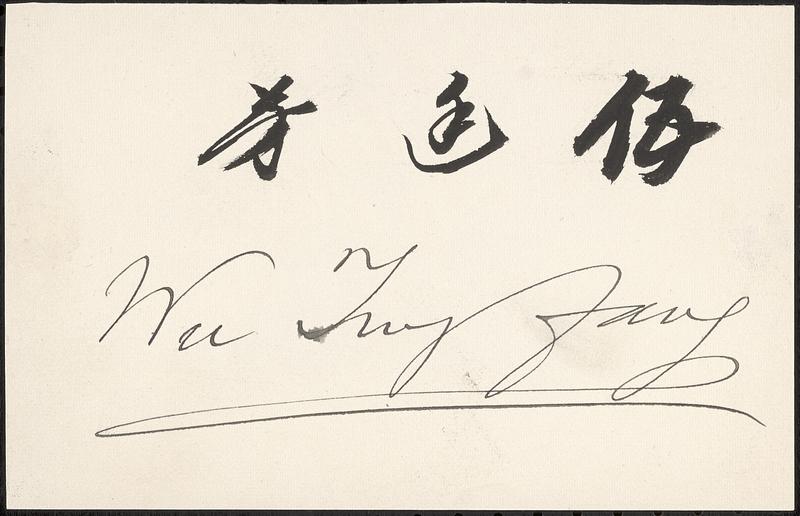 伍廷芳
Wu Ting Fang